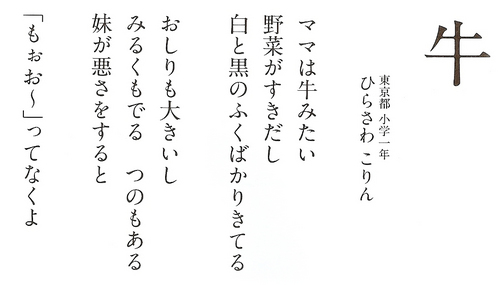 牛
東京都 小学一年
ひらさわ こりん
ママは牛みたい
野菜がすきだし
白と黒のふくばかりきてる
おしりも大きいし
みるくもでる　つのもある
妹が悪さをすると
「もぉお～」ってなくよ